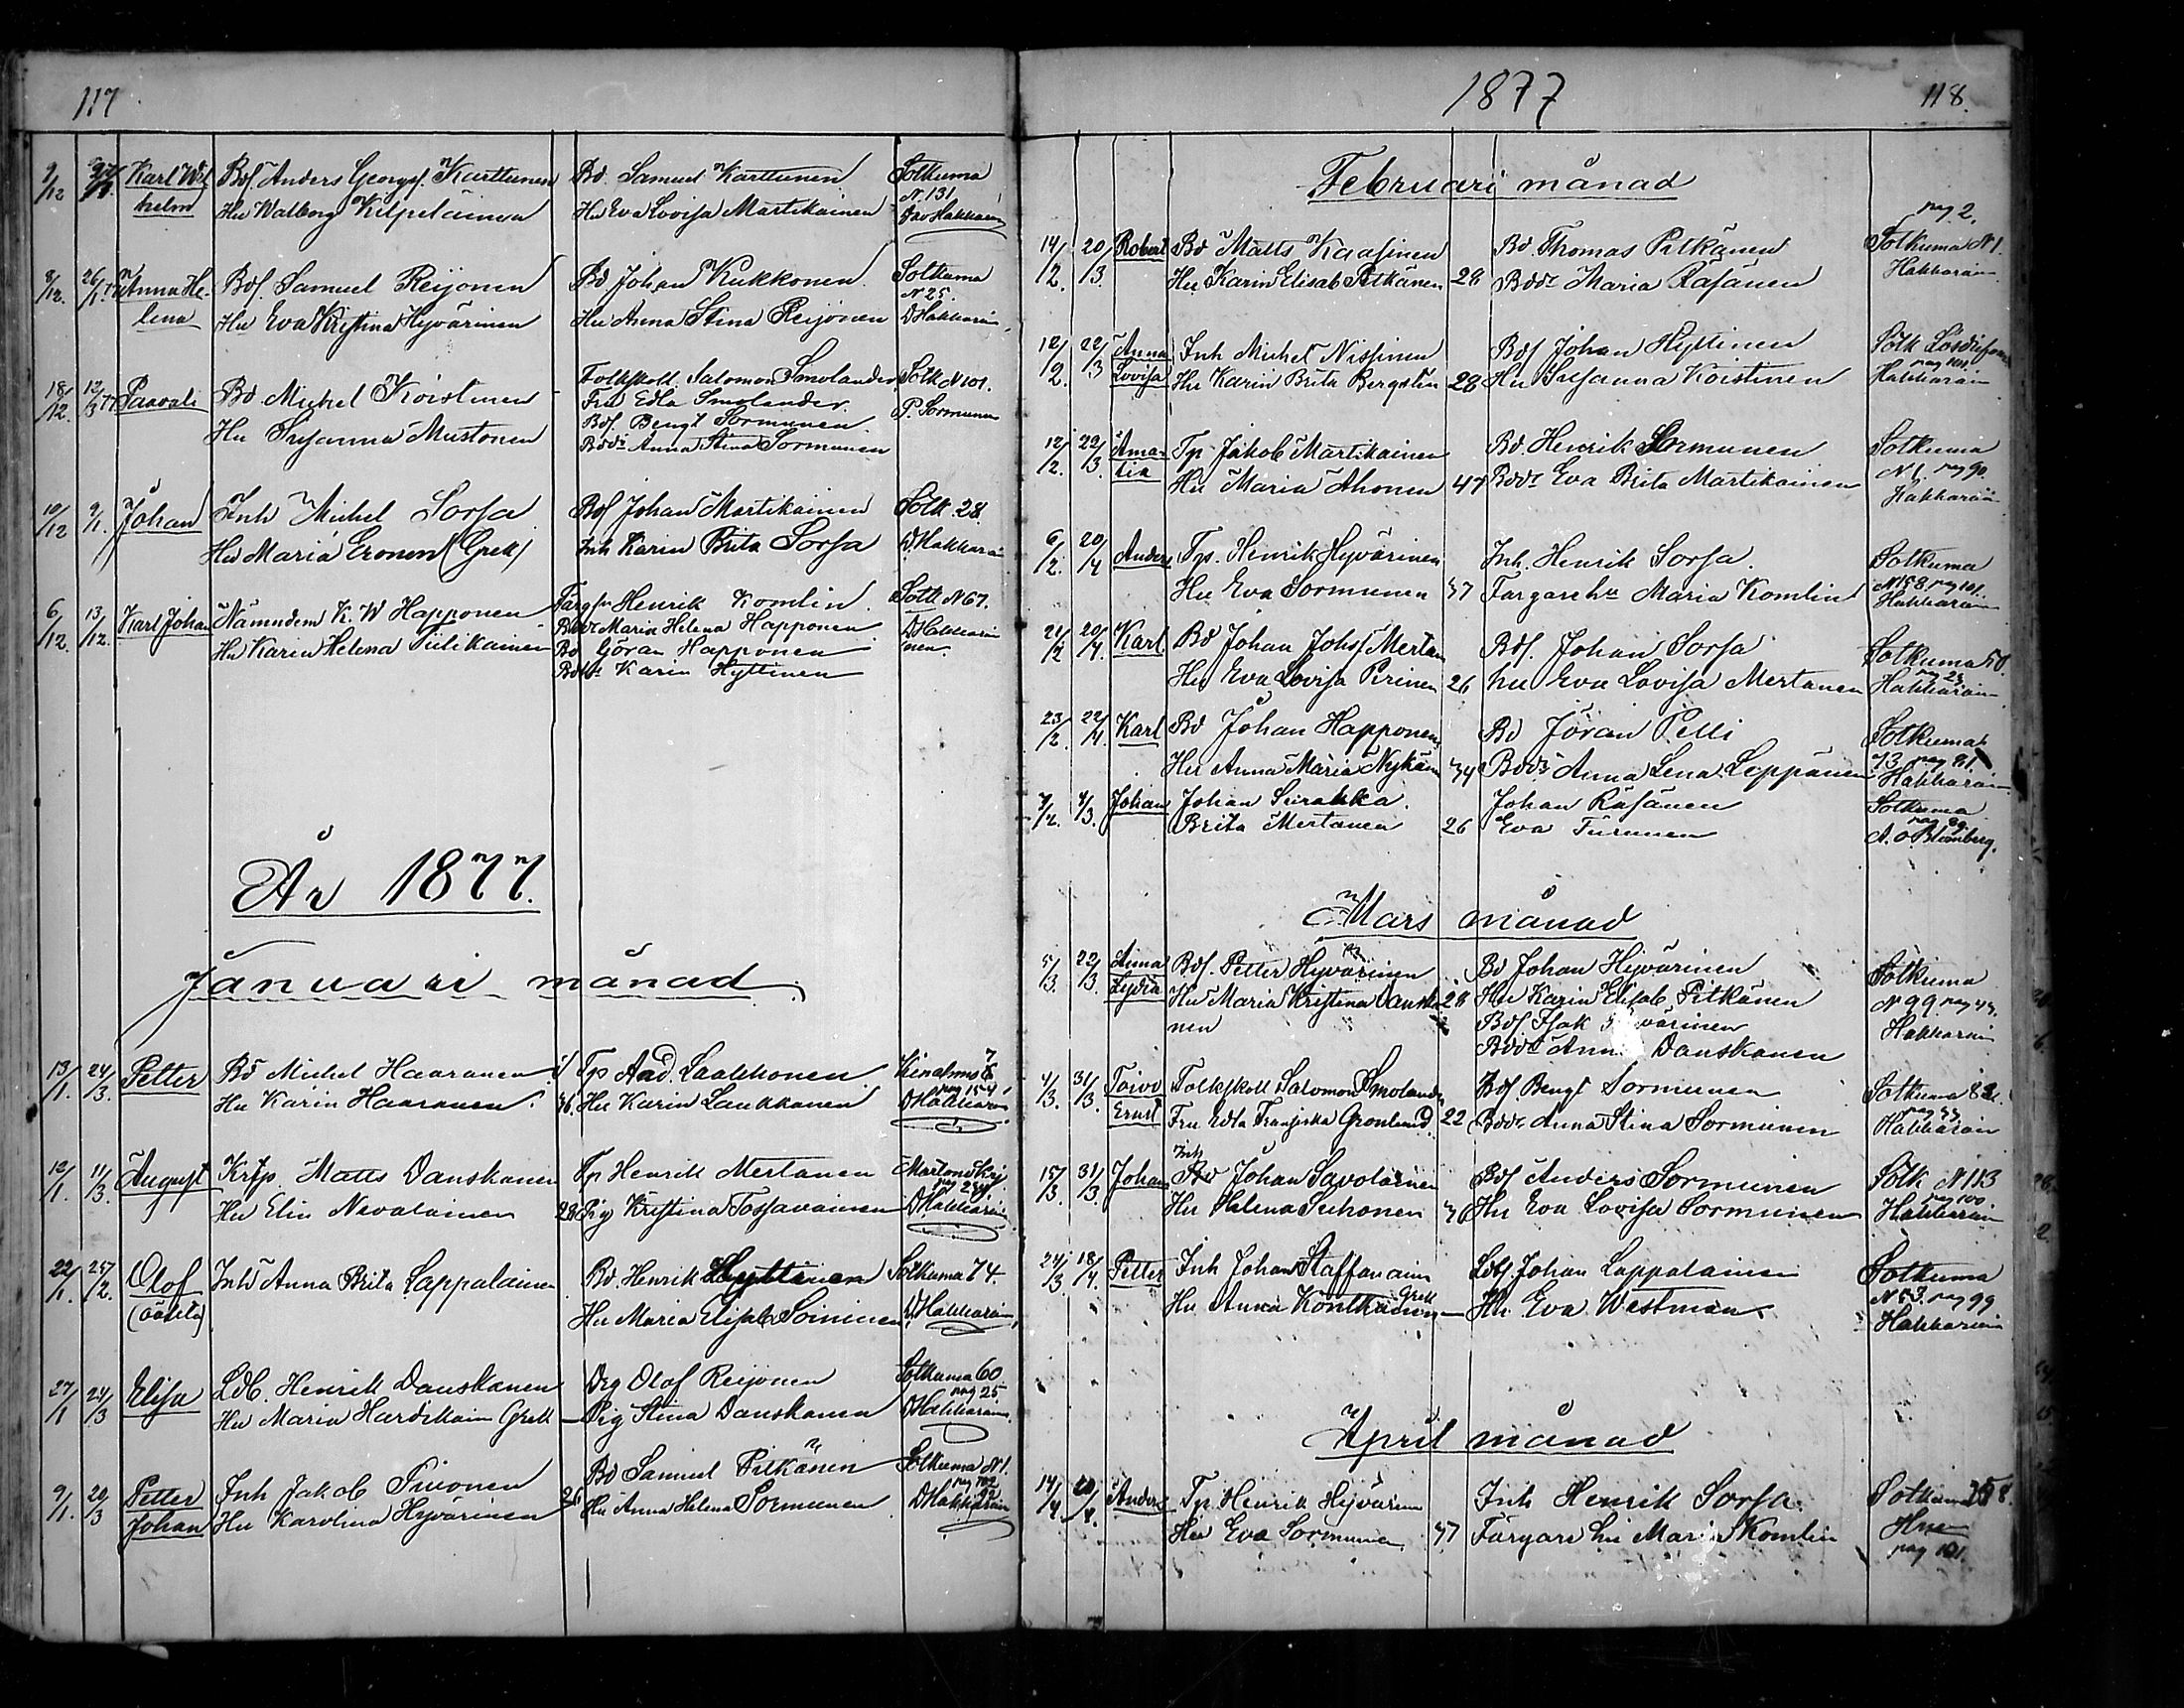 117
9/12 Karl Wil Bdf. Anders Georgsf. Karttunen Bd. Samuel Karttunen Sotkuma
helm Hu Walborg Kilpeläinen Hu Eva Lovisa Martikainen N. 131
8/12. 26/1 Anna He- Bdf. Samuel Reijonen Bd Johan Kukkonen Sotkuma
N 25.
lena Hu Eva Kristina Hyvärinen Hu Anna Stina Reijonen D Hakkarain
18/12. 12/3 Paavali Bd. Michel Koistinen Folkskoll. Salomon Smolander Sotk N 101.
Fru Edla Smolander. P. Sormunen
Hu Susanna Mustonen Bdf. Bengt Sormunen
Bddr Anna Stina Sormunen
10/12 9/1. Johan Inh Michel Sorsa Bdf Johan Martikainen Sotk. 28.
Hu Maria Eronen (Grek) Inh Karin Brita Sorsa D. Hakkarai
6/12. 13/12. Karl Johan Nämndem K. W Happonen Henrik Komlin Sotk N 67.
Hu Karin Helena Piilikainen Bddr Maria Helena Happonen D Hakkarai
Bd Göran Happonen nen
Karin Hyttinen
År 1877.
Januari månad
13/1. 24/3. Petter Bd Michel Haaranen Tp Aad. Laakkonen Kinahmo
Hu Karin Haaranen. 36. Hu Karin Laukkanen D Hakkarain
12/1. 11/3. August Krtp. Matts Danskanen Tp Henrik Mertanen
Hu Elin Nevalainen 28 Pig Kristina Tossavainen D Hakkarain
22/1. 25/2. Olof Inh Anna Brita Lappalainen Bd. Henrik Hyttinen Sotkuma 74.
(oäkta) Hu Maria Elisab Soininen D. Hakkarain
27/1 24/3 Elisa Ldb. Henrik Danskanen Drg Olof Reijonen Sotkuma 60
pag 25
Hu Maria Hardikain Grek Pig Stina Danskanen D Hakkarain
9/1. 20/3 Petter Inh Jakob Piironen 26 Bd Samuel Pitkänen Sotkuma N 1.
Johan Hu Karolina Hyvärinen Hu Anna Helena Sormunen D Hakkarain
1877 118.
Februari månad
pag 2.
14/2. 20/3. Robert Bd Matts Kaasinen Bd. Thomas Pitkänen Sotkuma N 1.
Hu Karin Elisab Pitkänen 28 Bddr Maria Räsänen Hakkarain
12/2. 22/3 Anna Inh Michel Nissinen Bdf Johan Hyttinen Sotk
pag 101.
Lovisa Hu Karin Brita Bergstén 28 Hu Susanna Koistinen Hakkarain
12/2. 22/3. Ama- Tp Jakob Martikainen Bd. Henrik Sormunen Sotkuma
lia Hu Maria Ahonen 47 Bddr Eva Brita Martikainen N 1. pag 90.
Hakkarain
6/2. 20/4 Anders Tp. Henrik Hyvärinen Inh. Henrik Sorsa. Sotkuma
N 158 pag 101.
Hu Eva Sormunen 37 Färgarehu Maria Komlin Hakkarain
21/2 20/4. Karl Bd Johan Johsf Mertan Bdf. Johan Sorsa Sotkuma 50.
Hu Eva Lovisa Pirinen 26 hu Eva Lovisa Mertanen Hakkarain
23/2. 22/4. Karl Bd Johan Happonen Bd Jöran Pelli Sotkuma
73 pag 81.
Hu Anna Maria Nykän 34 Bddr Anna Lena Leppänen Hakkarain
7/2. 4/3. Johan Johan Surakka. Johan Räsänen Sotkuma
pag 89.
Brita Mertanen 26 Eva Turunen A. O. Blomberg.
Mars månad
5/3. 22/3. Anna Bdf. Petter Hyvärinen Bd Johan Hyvärinen Sotkuma
Lydia Hu Maria Kristina Danska 28 Hu Karin Elisab. Pitkänen N 99 pag 43.
nen Bdf. Isak Hyvärinen Hakkarain
Bddr Anna Danskanen
4/3. 31/3. Toivo Folkskoll Salomon Smolander Bdf Bengt Sormunen Sotkuma
Ernst Fru Edla Fransiska Gronlund. 22 Bddr Anna Stina Sormunen Hakkarain
Inh
15/3. 31/3. Johan Johan Savolainen Bdf Anders Sormunen Sotk N 113
pag 100
Hu Helena Suhonen 36 Hu Eva Lovisa Sormunen Hakkarain
24/3. 18/4. Petter Inh Johan Staffanain Ldbf. Johan Lappalainen Sotkuma
Grek
Hu Anna Kontkainen — Hu Eva Westman N 53. pag 99
Hakkarain
April månad
14/4 Anders Tp. Henrik Hyvärin Inh Henrik Sorsa. Sotkuma 158.
Hu Eva Sormunen 37 Färgare hu Maria Komlin Hnen
pag 101.